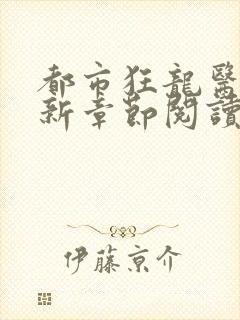 都市狂龍醫
新章節閱讀
伊藤京介